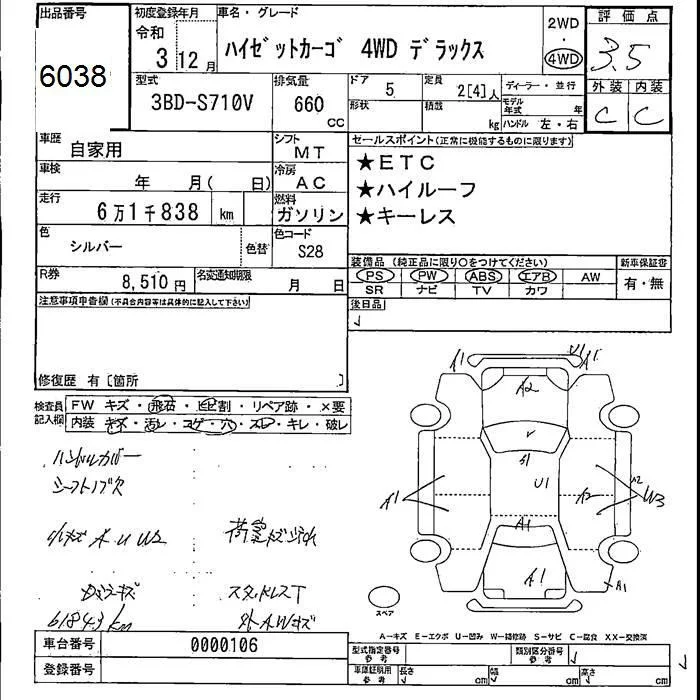 出品番号
6038
初度登録年月
令和
3 12月
車名・グレード
ハイゼットカーゴ 4WD デラックス
2WD
・
4WD
評価点
3.5
型式
3BD-S710V
排気量
660
CC
ドア
5
定員
2[4]人
ディーラー・並行
形状
積載
kg
モデル年式
年
ハンドル 左・右
外装 内装
C C
車歴
自家用
シフト
MT
車検
年 月( 日)
冷房
AC
走行
6万1千838 km
燃料
ガソリン
色
シルバー
色替
色コード
S28
セールスポイント(正常に機能するものに限ります)
★ETC
★ハイルーフ
★キーレス
R券
8,510円
名変通知期限
月 日
装備品 (純正品に限り○をつけてください)
PS PW ABS エアB AW
SR ナビ TV カワ
新車保証書
有・無
注意事項申告欄(不具合内容等は具体的に記入して下さい)
後日品
修復歴 有〔箇所 〕
検査員
記入欄
FW キズ・飛石・ヒビ割・リペア跡・×要
内装 キズ・汚レ・コゲ・穴・スレ・キレ・破レ
ハンドルカバー
シフトノブ欠
小キズ A U W2
荷室キズ汚れ
ダッシュキズ
スタッドレスT
61843km
外AWキズ
A1
U1
A1
A2
S1
U1
A1
A1
A1
A2
A2
W3
A1
スペア
A-キズ E-エクボ U-凹み W-補修跡 S-サビ C-腐食 XX-交換済
車台番号
0000106
登録番号
型式指定番号
参考
類別区分番号
参考
車庫証明用
参考
長さ
cm
幅
cm
高さ
cm